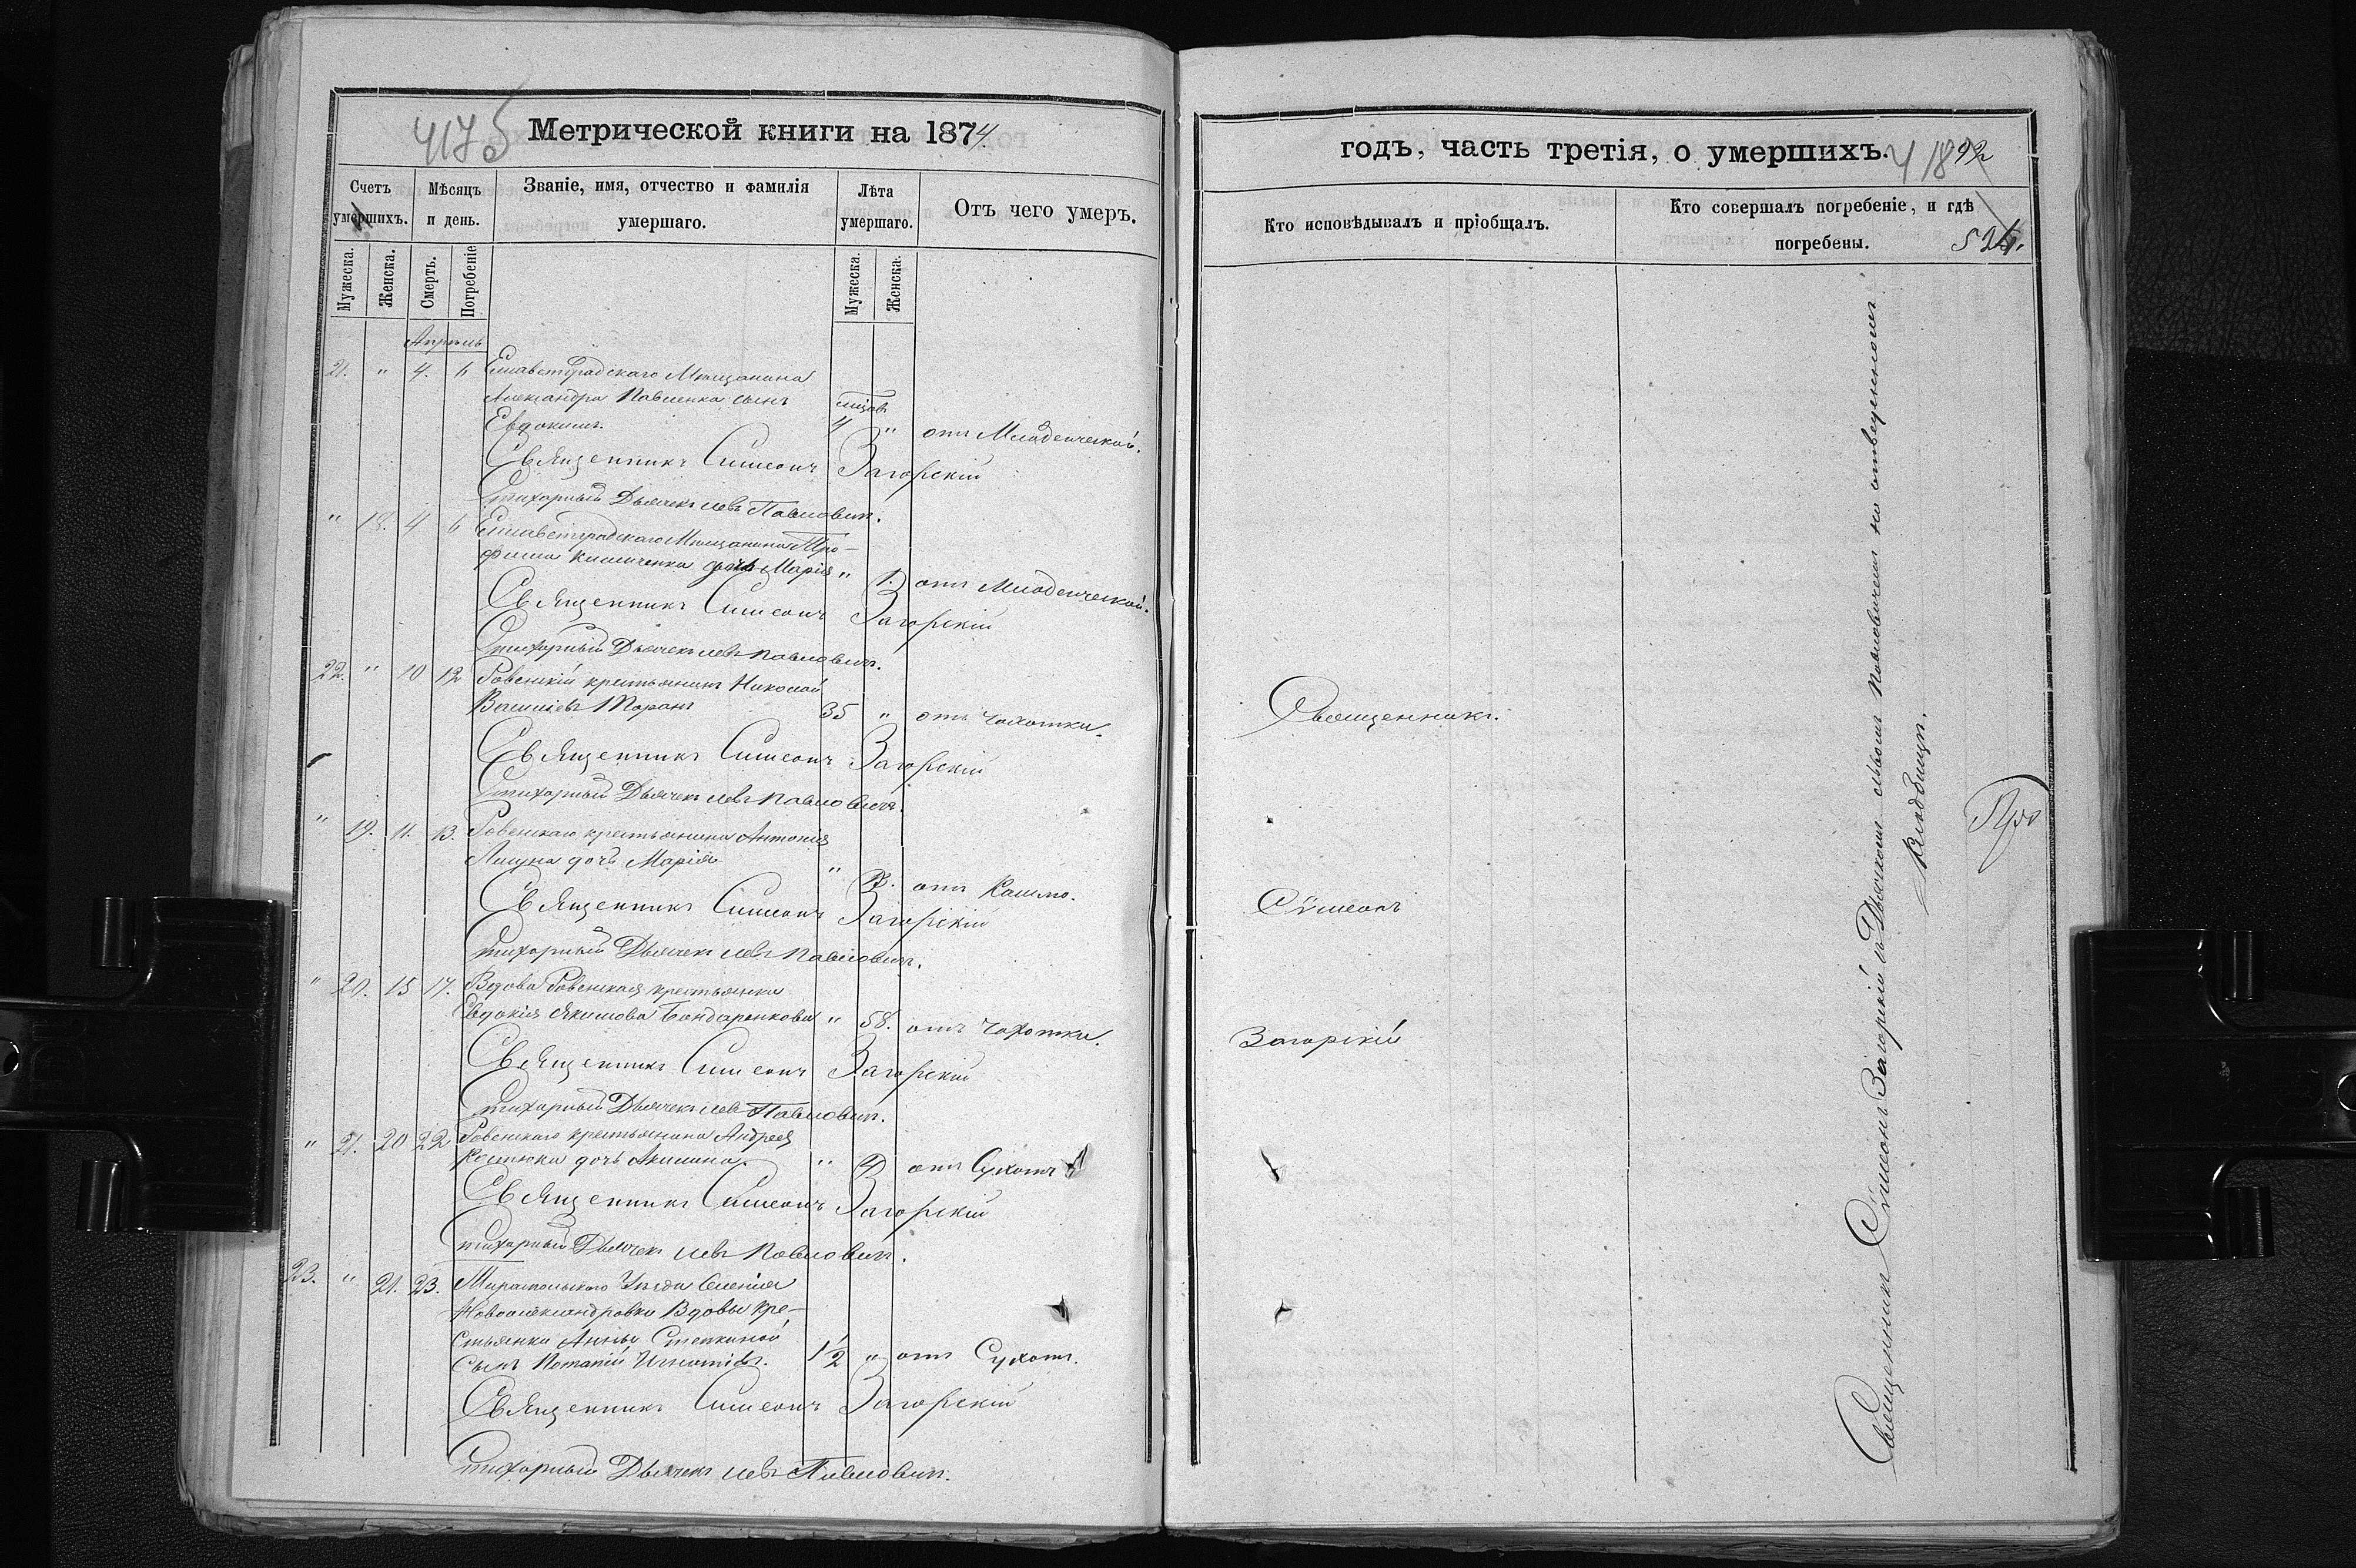 Метрической книги на 1874.
Счетъ умершихъ.
Мѣсяцъ и день.
Званіе, имя, отчество и фамилія умершаго.
Лѣта умершаго.
Отъ чего умеръ.
Мужеска.
Женска.
Смерть.
Погребеніе
Мужеска.
Женска.
Апрѣль
21. " 4. 6 Елисаветградскаго Мѣщанина
Александра Павленка сынъ
Евдокимъ. 4 " отъ Младенческой.
Священникъ Симеонъ Загорскій
Стихарный Дьячекъ Левъ Павловичъ.
" 18. 4 6 Елисаветградскаго Мѣщанина Тро-
фима дочь Марія " 1. отъ Младенческой.
Священникъ Симеонъ Загорскій
Стихарный Дьячекъ Левъ Павловичъ.
22. " 10 12 Ровенскій крестьянинъ Николай
Василіевъ Таранъ 35 " отъ Чахотки.
Священникъ Симеонъ Загорскій
Стихарный Дьячекъ Левъ Павловичъ.
" 19. 11. 13. Ровенскаго крестьянина Антонія
дочь Марія " отъ Кашлю.
Священникъ Симеонъ Загорскій
Стихарный Дьячекъ Левъ Павловичъ.
" 20. 15 17. Вдова Ровенская крестьянка
Евдокія Якимова Бондаренкова " 58. отъ Чахотки.
Священникъ Симеонъ Загорскій
Стихарный Дьячекъ Левъ Павловичъ.
" 21. 20 22 Ровенскаго крестьянина Андрея
Костюка дочь Акилина " отъ Сухотъ
Священникъ Симеонъ Загорскій
Стихарный Дьячекъ Левъ Павловичъ.
23. " 21. 23. Уѣзда Селенія
Новоалександровки Вдовы кре-
стьянки Анны Степкиной
Сынъ Игнатіевъ. 1/2 " отъ Сухотъ.
Священникъ Симеонъ Загорскій
Стихарный Дьячекъ Левъ Павловичъ.
годъ, часть третія, о умершихъ.
Кто исповѣдывалъ и пріобщалъ.
Кто совершалъ погребеніе, и гдѣ
погребены.
Священникъ.
Сѵмеонъ
Загорскій
Священникъ Сѵмеонъ Загорскій съ Дьячкомъ Львомъ Павловичемъ на отведенномъ
Кладбищѣ.